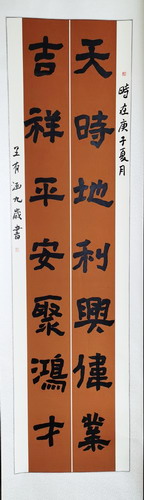 時在庚子夏月
天時地利興偉業
吉祥平安聚鴻才
王有涵九歲書